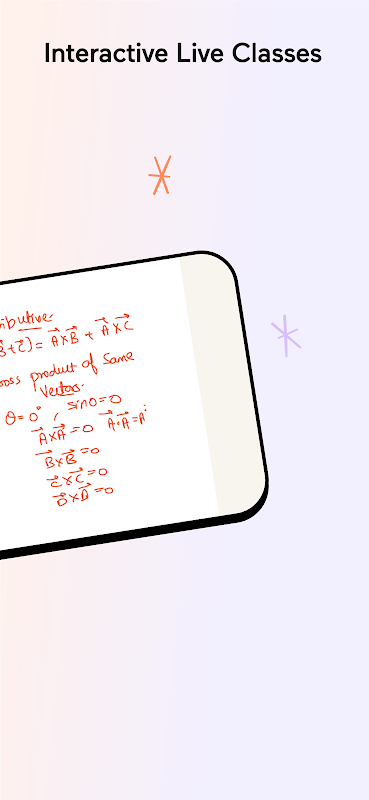 Interactive Live Classes
ributive
B⃗+C⃗) = A⃗xB⃗ + A⃗xC⃗
oss product of same
Vectors.
θ=0°, sin0=0
A⃗xA⃗=0 A⃗·A⃗=A²
B⃗xB⃗=0
C⃗xC⃗=0
D⃗xD⃗=0